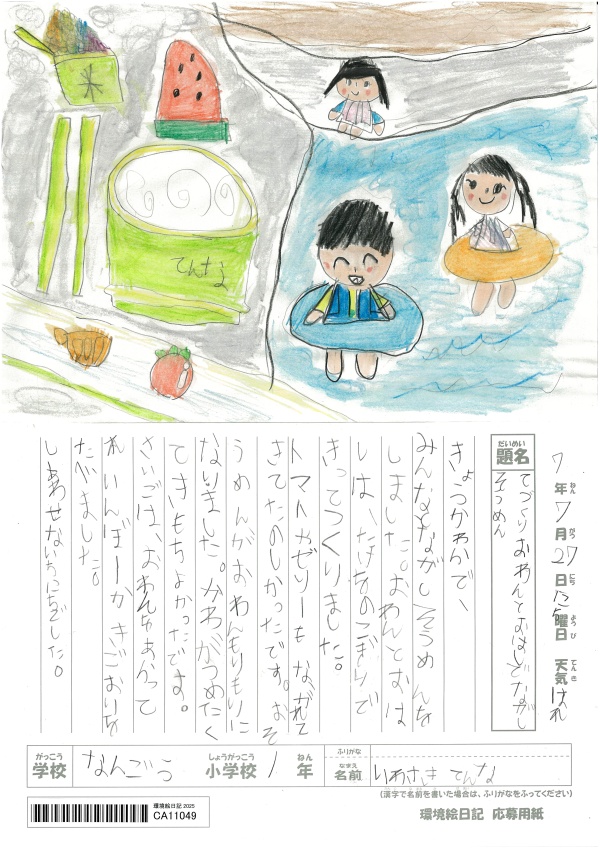 てんな
7年7月27日にち曜日 天気はれ
ねん がつ にち ようび てんき
だいめい
題名
てづくりおわんとおはしでながし
そうめん
きょうかわで、
みんなでながしそうめんを
しました。おわんとおは
しは、たけをのこぎりで
きってつくりました。
トマトやゼリーもながれて
きてたのしかったです。おそ
うめんがおわんもりもりに
なりました。かわがつめたく
てきもちよかったです。
さいごは、おわんをあらって
れいんぼーかきごおりを
たべました。
しあわせないちにちでした。
がっこう しょうがっこう ねん
学校 なんごう 小学校 1年
ふりがな
なまえ
名前 いわさき てんな
(漢字で名前を書いた場合は、ふりがなをふってください)
環境絵日記 2025
CA11049
環境絵日記 応募用紙